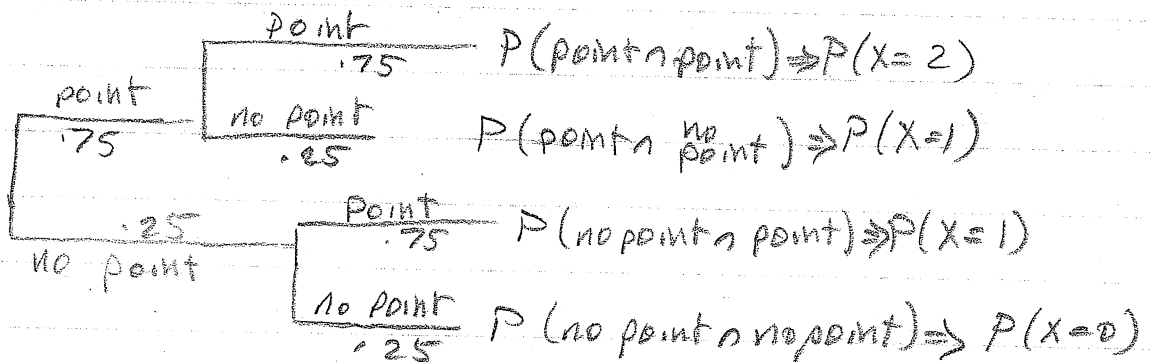 point
.75 P(point∩point)⇒P(X=2)
point
.75
no point
.25 P(point∩ no point)⇒P(X=1)
.25
no point
Point
.75 P(no point∩point)⇒P(X=1)
no point
.25 P(no point∩no point)⇒ P(X=0)